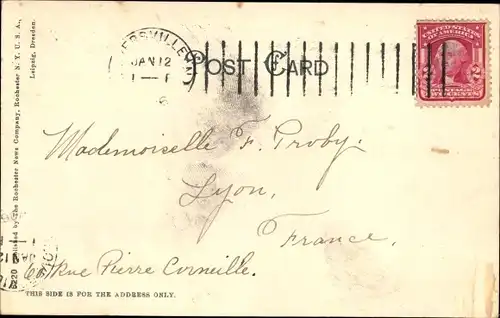 JAN 12
POST CARD
UNITED STATES OF AMERICA
2 2
TWO CENTS
Mademoiselle F. Proby.
Lyon,
France.
Rue Pierre Corneille.
THIS SIDE IS FOR THE ADDRESS ONLY.
Published by The Rochester News Company, Rochester N. Y. U. S. A.,
Leipzig, Dresden.